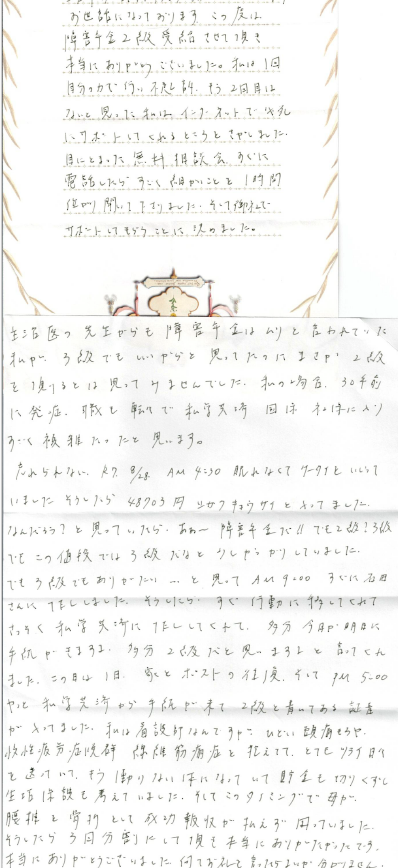 お世話になっております この度は
障害年金2級受給させて頂き
本当にありがとうございました。私は1回
自分の力で行い不支給、もう2回目は
ないと思った私は インターネットで
にサポートしてくれるところをさがしました。
目にとまった無料相談会 すぐに
電話したら すごく細かいことを1時間
ばかり聞いて下さりました。そして
サポートしてもらうことに決めました。
主治医の先生からも障害年金はムリと言われていた
私が、3級でもいいからと思ってたのにまさか2級
を頂けるとは思ってみませんでした。私の場合、30年前
に発症、職も転々で私学共済 国保 社保に入り
すごく複雑だったと思います。
忘れられない 8/28 AM4:30 眠れなくてケータイをいじって
いました そうしたら 48703円 キョウサイと入ってました。
なんだろう?と思っていたら、あぁー障害年金だ!!でも2級?3級
でもこの値段では3級だなと少しがっかりしていました。
でも3級でもありがたい…と思って AM9:00 すぐに石田
さんにTELしました。そうしたら すぐ行動に移してくれて
さっそく私学共済にTELしてくれて、多分今日か明日に
手紙がきますよ、多分2級だと思いますよと言ってくれ
ました。この日は1日、家とポストの往復、そして PM5:00
やっと私学共済から手紙が来て2級と書いてある証書
が入ってました。私は看護師なんですが ひどい頭痛もちや、
慢性疲労症候群 線維筋痛症と抱えてて、とてもツライ日々
を送っていて、もう働けない体になっていて貯金も切りくずし
生活保護も考えていました。そしてこのタイミングで母が、
腰椎と骨折として成功報酬が払えず困っていました。
そうしたら3回分割にして頂き本当にありがたかったです。
本当にありがとうございました 何てお礼を言ったらよいか分かりません。